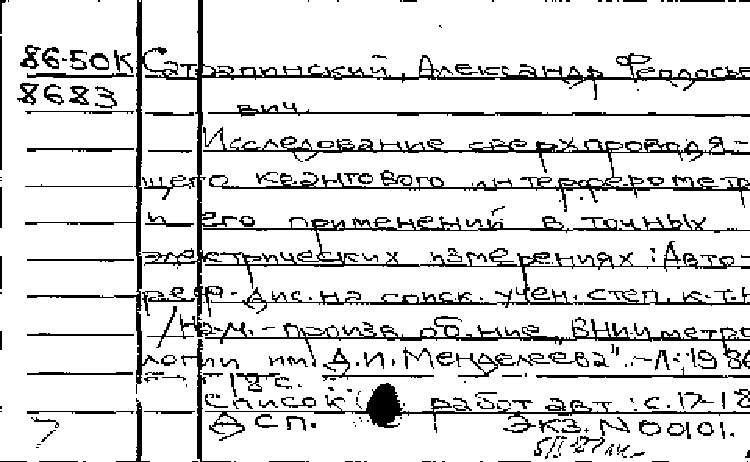 86-50К Сатрапинский, Александр Феодосье
8683
вич.
Исследование сверхпроводя-
щего квантового интерферометр
и его применений в точных
электрических измерениях : Авто-
реф. дис. на соиск. учен. степ. к.т.н
/ Науч.-произв. об-ние "ВНИИ метро
логии им. Д.И. Менделеева". - Л., 1986
18 с.
Список работ авт.: с. 17-18
ДСП. Экз. N 00101.